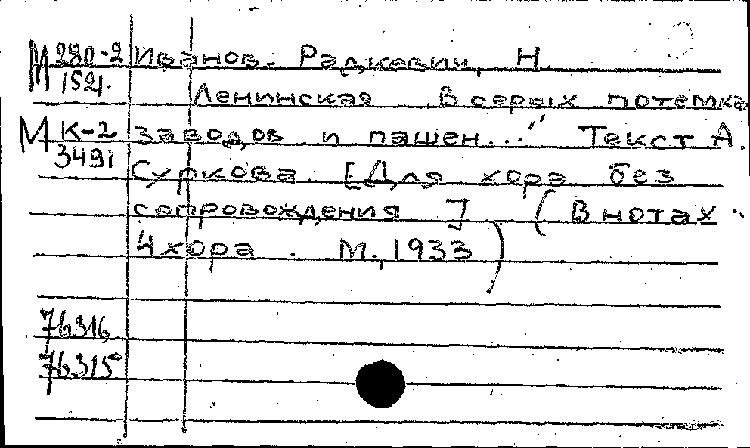 М 280-2 Иванов-Радкевич, Н.
1521.
Ленинская „В серых потемка
М К-2 заводов и пашен..." Текст А.
3491 Суркова. [Для хора без
сопровождения] (В нотах:
4 хора. М., 1933)
76316
76315